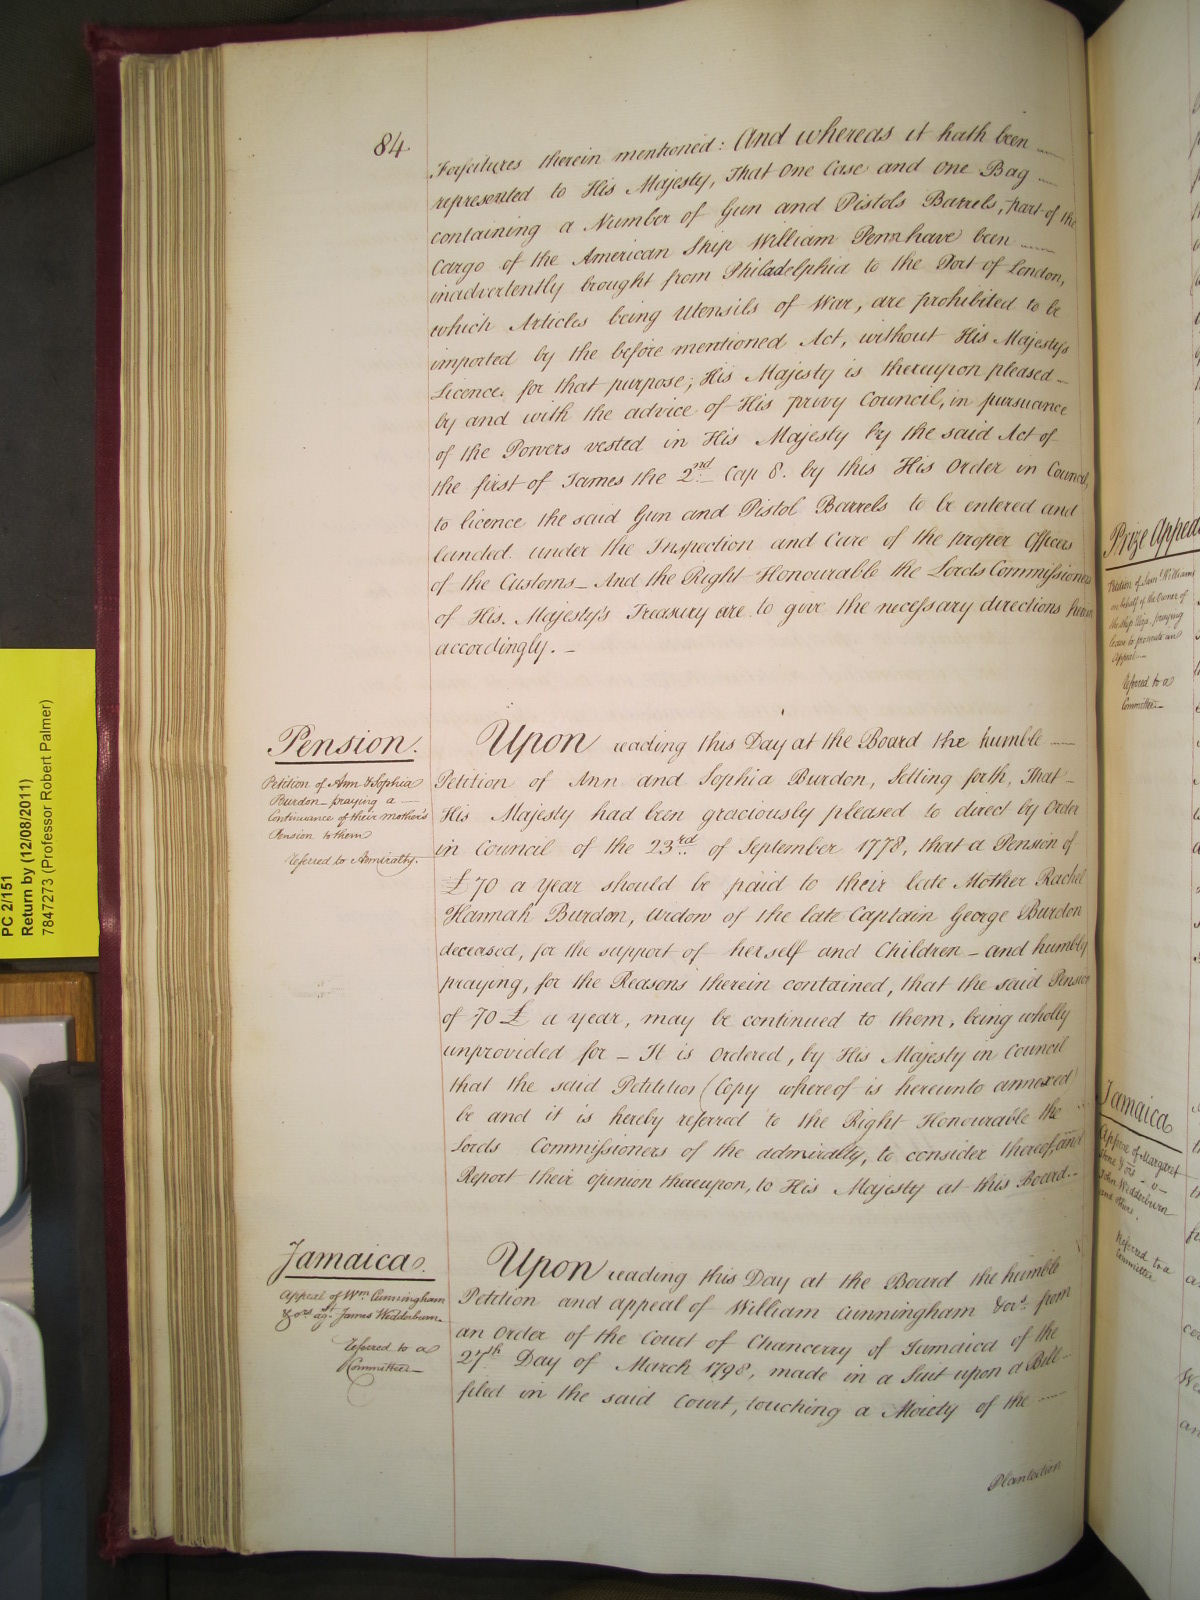 84.
Forfeitures therein mentioned: And whereas it hath been
represented to His Majesty, That One Case and One Bag
containing a Number of Gun and Pistols Barrels, part of the
Cargo of the American Ship William Penn have been
inadvertently brought from Philadelphia to the Port of London,
which Articles being Utensils of War, are prohibited to be
imported by the before mentioned Act, without His Majestys
Licence for that purpose; His Majesty is thereupon pleased
by and with the advice of His privy Council, in pursuance
of the Powers vested in His Majesty by the said Act of
the first of James the 2nd Cap 8. by this His Order in Council,
to licence the said Gun and Pistol Barrels to be entered and
landed under the Inspection and Care of the proper Officers
of the Customs_ And the Right Honourable the Lords Commissioners
of His Majesty's Treasury are to give the necessary directions herein
accordingly. _
Pension.
Petition of Ann & Sophia
Burdon_ praying a
Continuance of their mother's
Pension to them
Referred to Admiralty.
Upon reading this Day at the Board the humble
Petition of Ann and Sophia Burdon, Setting forth, That
His Majesty had been graciously pleased to direct by Order
in Council of the 23rd of September 1778, that a Pension of
£70 a Year should be paid to their late Mother Rachel
Hannah Burdon, Widow of the late Captain George Burdon
deceased, for the support of herself and Children _ and humbly
praying, for the Reasons therein contained, that the said Pension
of 70 £ a year, may be continued to them, being wholly
unprovided for _ It is Ordered, by His Majesty in Council
that the said Petition (Copy whereof is hereunto annexed)
be and it is hereby referred to the Right Honourable the
Lords Commissioners of the admiralty, to consider thereof, and
Report their opinion thereupon, to His Majesty at this Board._
Jamaica.
Appeal of Wm Cunningham
& ors agt James Wedderburn.
Referred to a
Committee_
Upon reading this Day at the Board the humble
Petition and appeal of William Cunningham & ors from
an Order of the Court of Chancery of Jamaica of the
27th Day of March 1798, made in a Suit upon a Bill
filed in the said Court, touching a Moiety of the
Plantation
PC 2/151
Return by (12/08/2011)
7847273 (Professor Robert Palmer)
Prize Appeal
Petition of Saml Williams
on behalf of the Owner of
the Ship Eliza, praying
leave to prosecute an
Appeal_
Referred to a
Committee_
Jamaica
Appeal of Margaret
Stone & ors - v -
John Wedderburn
and others.
Referred to a
Committee